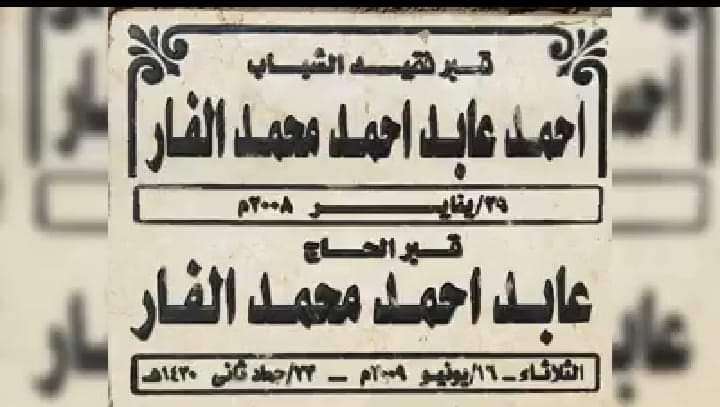 قبر فقيد الشباب
احمد عابد احمد محمد الفار
٢٩/يناير ٢٠٠٨م
قبر الحاج
عابد احمد محمد الفار
الثلاثاء - ١٦/يونيو ٢٠٠٩م - ٢٣/جماد ثانى ١٤٣٠هـ